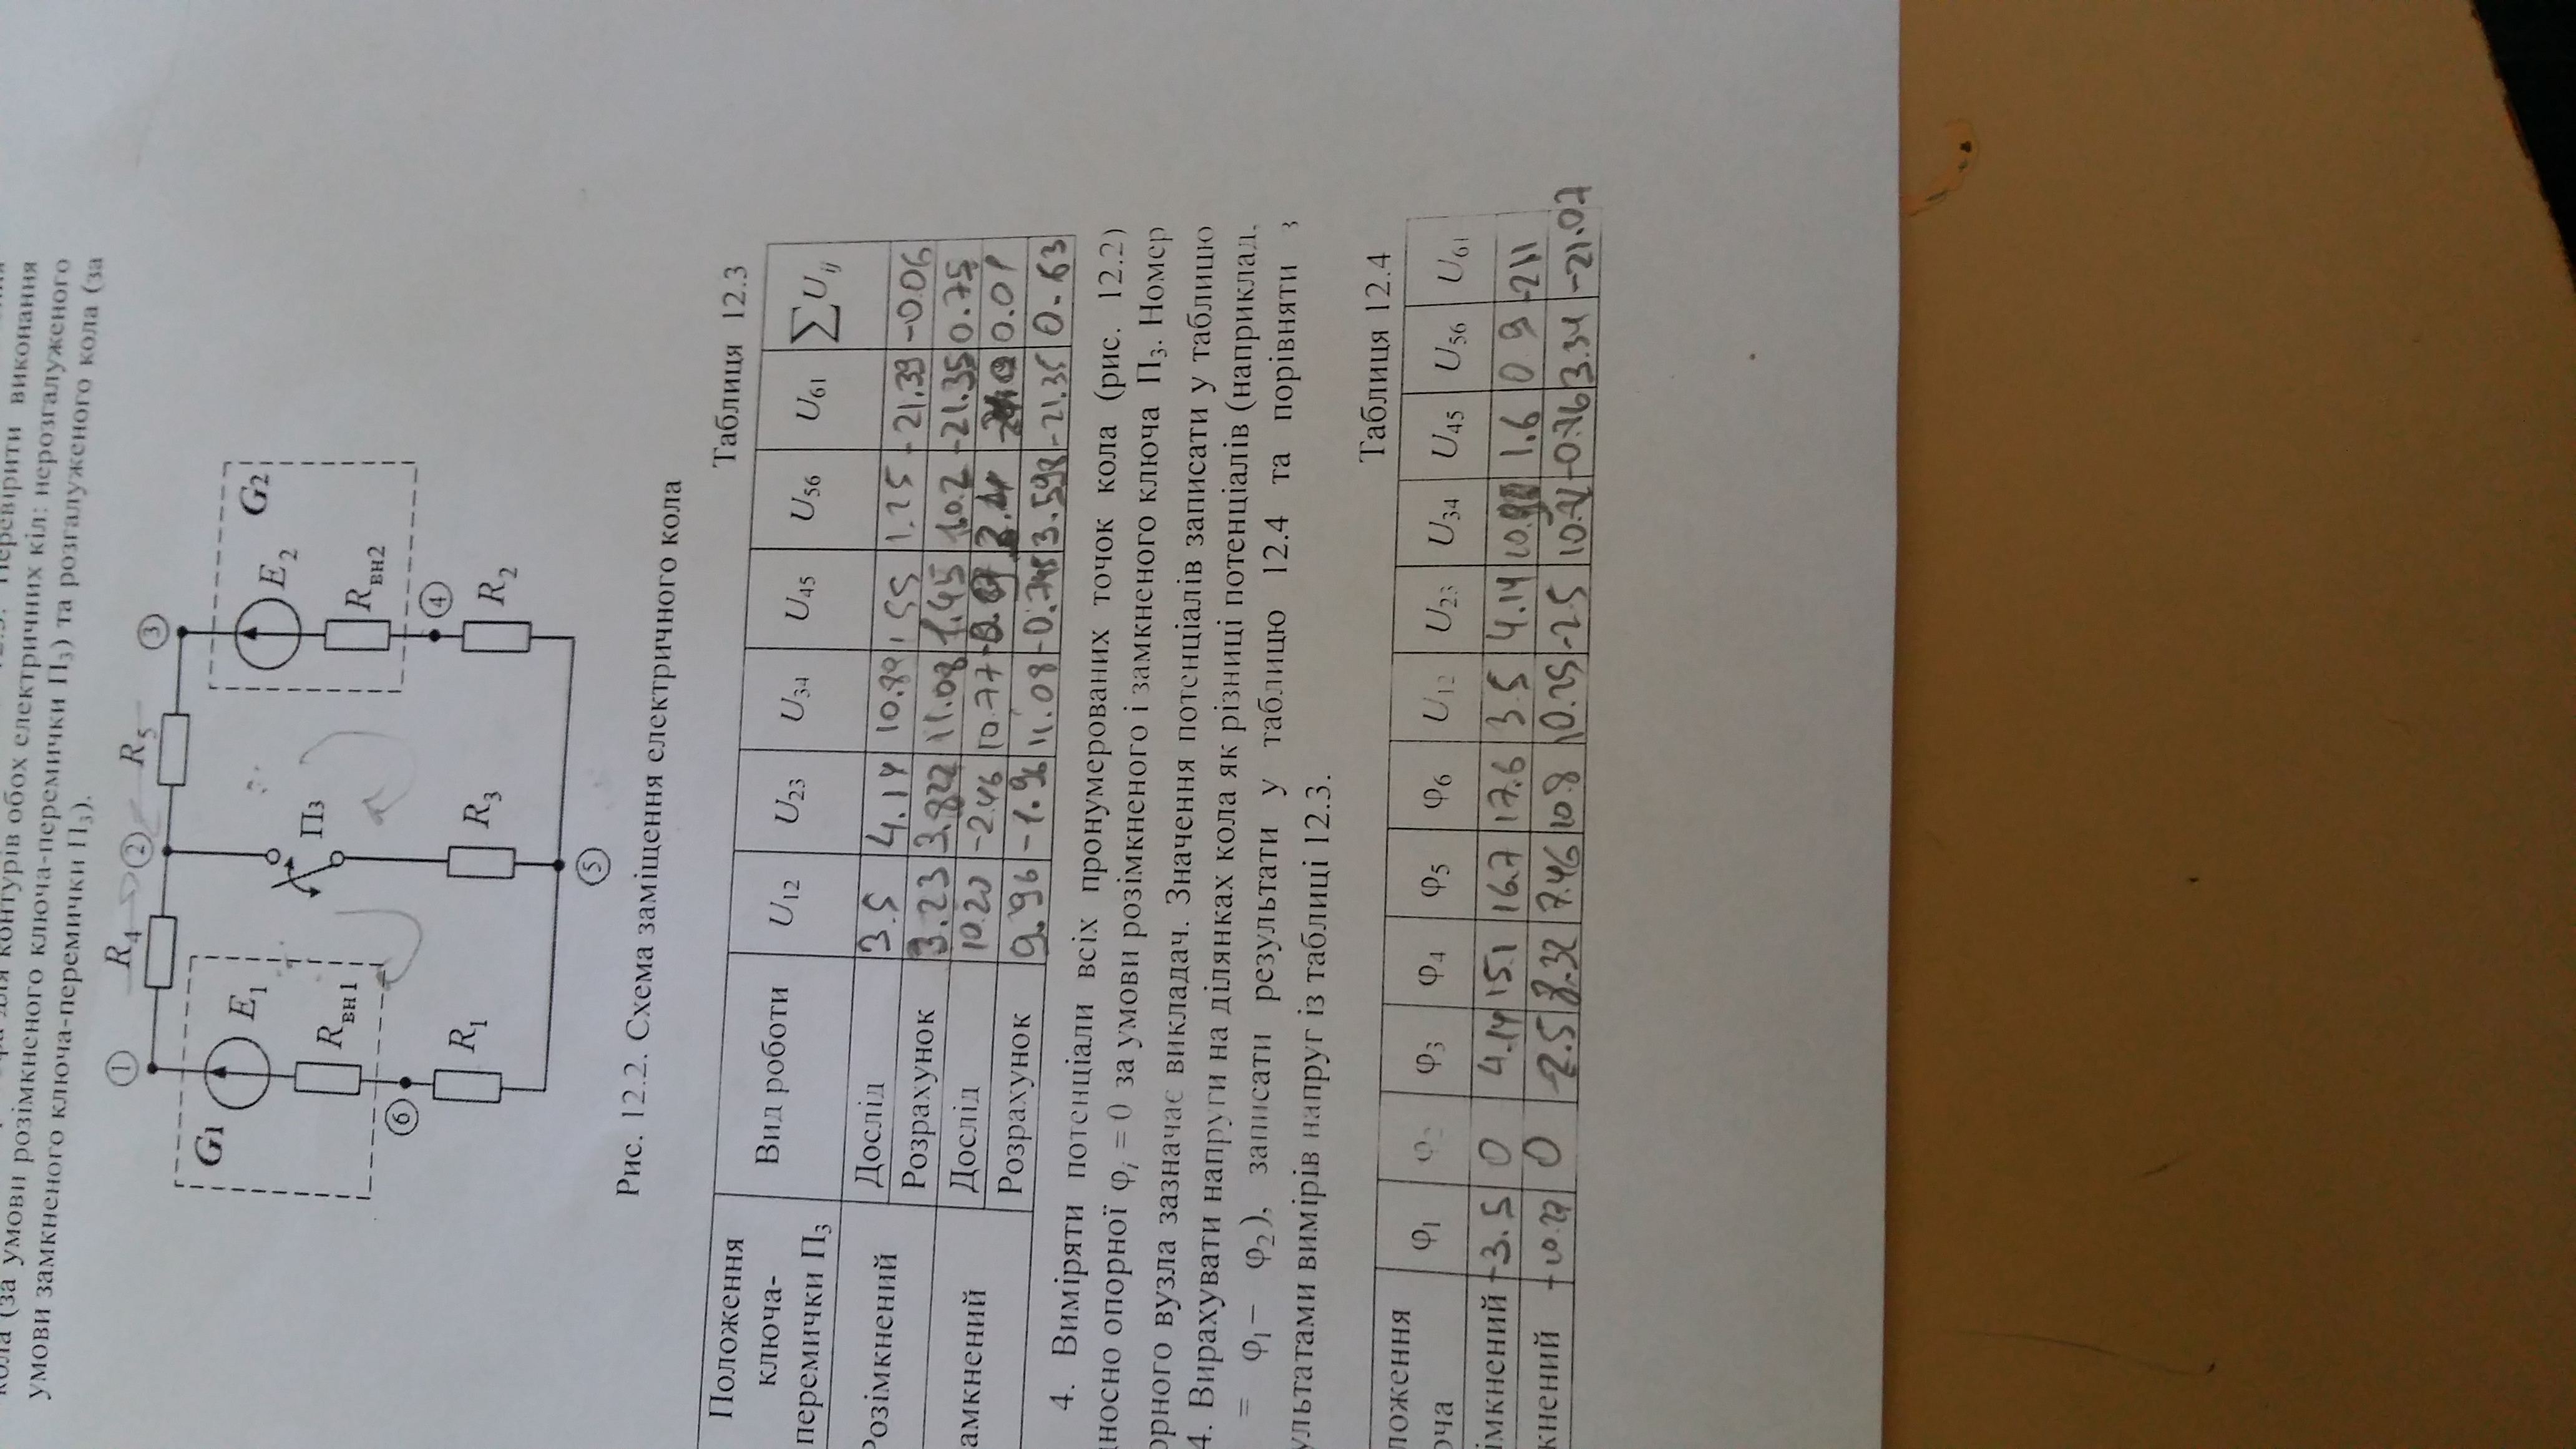 кола (за умови розімкненого ключа-перемички П3) та розгалуженого кола (за
для контурів обох електричних кіл: нерозгалуженого
Перевірити виконання
умови замкненого ключа-перемички П3).
1 R4 2 R5 3
G1 E1 Rвн1
П3
E2 G2 Rвн2
6 4
R1 R3 R2
5
Рис. 12.2. Схема заміщення електричного кола
Таблиця 12.3
Положення ключа-перемички П3 Вид роботи U12 U23 U34 U45 U56 U61 ∑Uij
Розімкнений Дослід 3.5 4.14 10.89 1.55 1.25 -21.39 -0.06
Розрахунок 3.23 3.822 11.08 1.45 -21.35 0.75
амкнений Дослід 10.20 -2.46 10.77 0.01
Розрахунок 9.96 -1.96 11.08 -0.745 3.598 -21.35 0.63
4. Виміряти потенціали всіх пронумерованих точок кола (рис. 12.2)
дносно опорної φi = 0 за умови розімкненого і замкненого ключа П3. Номер
орного вузла зазначає викладач. Значення потенціалів записати у таблицю
4. Вирахувати напруги на ділянках кола як різниці потенціалів (наприклад,
= φ1 − φ2), записати результати у таблицю 12.4 та порівняти з
ультатами вимірів напруг із таблиці 12.3.
Таблиця 12.4
ложення юча φ1 φ2 φ3 φ4 φ5 φ6 U12 U23 U34 U45 U56 U61
імкнений +3.5 0 4.14 15.1 16.7 17.6 3.5 4.14 1.6 0.9 -21.1
кнений +10.27 0 -2.5 8.32 7.46 10.8 10.25 -2.5 -0.76 3.34 -21.07